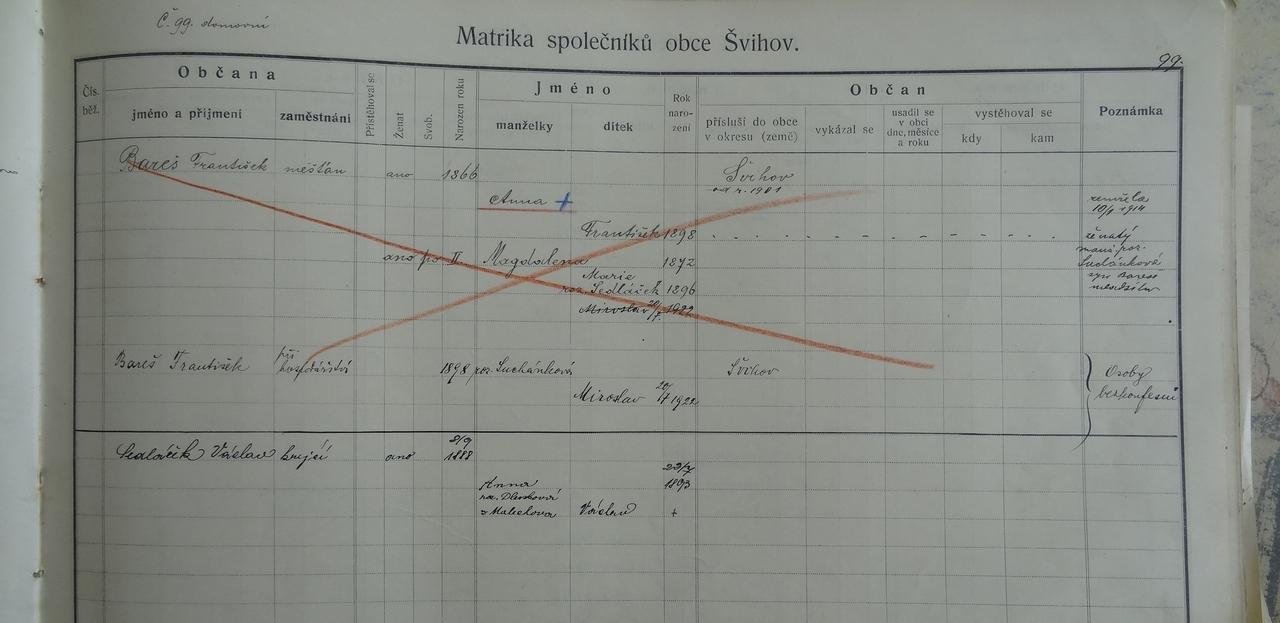 Č. 99. domovní
Matrika společníků obce Švihov.
99.
Čís. běž.
Občana
jméno a příjmení
zaměstnání
Přistěhoval se
Ženat
Svob.
Narozen roku
Jméno
manželky
dítek
Rok naro- zení
Občan
přísluší do obce v okresu (země)
vykázal se
usadil se v obci dne, měsíce a roku
vystěhoval se
kdy
kam
Poznámka
Bareš František měšťan ano 1866 Švihov
od r. 1901
Anna + zemřela
10/4 1914
František 1898 ženatý
ano po II. Magdalena 1872
Marie
roz. Sedláček 1896
Miroslav 20/7 1922
Bareš František při hospodářství 1898 roz. Suchánková Švihov Osoby
Miroslav 20/7 1922 bezkonfesní
Sedláček Václav krejčí ano 8/9 1888
Anna 1893
Václav +